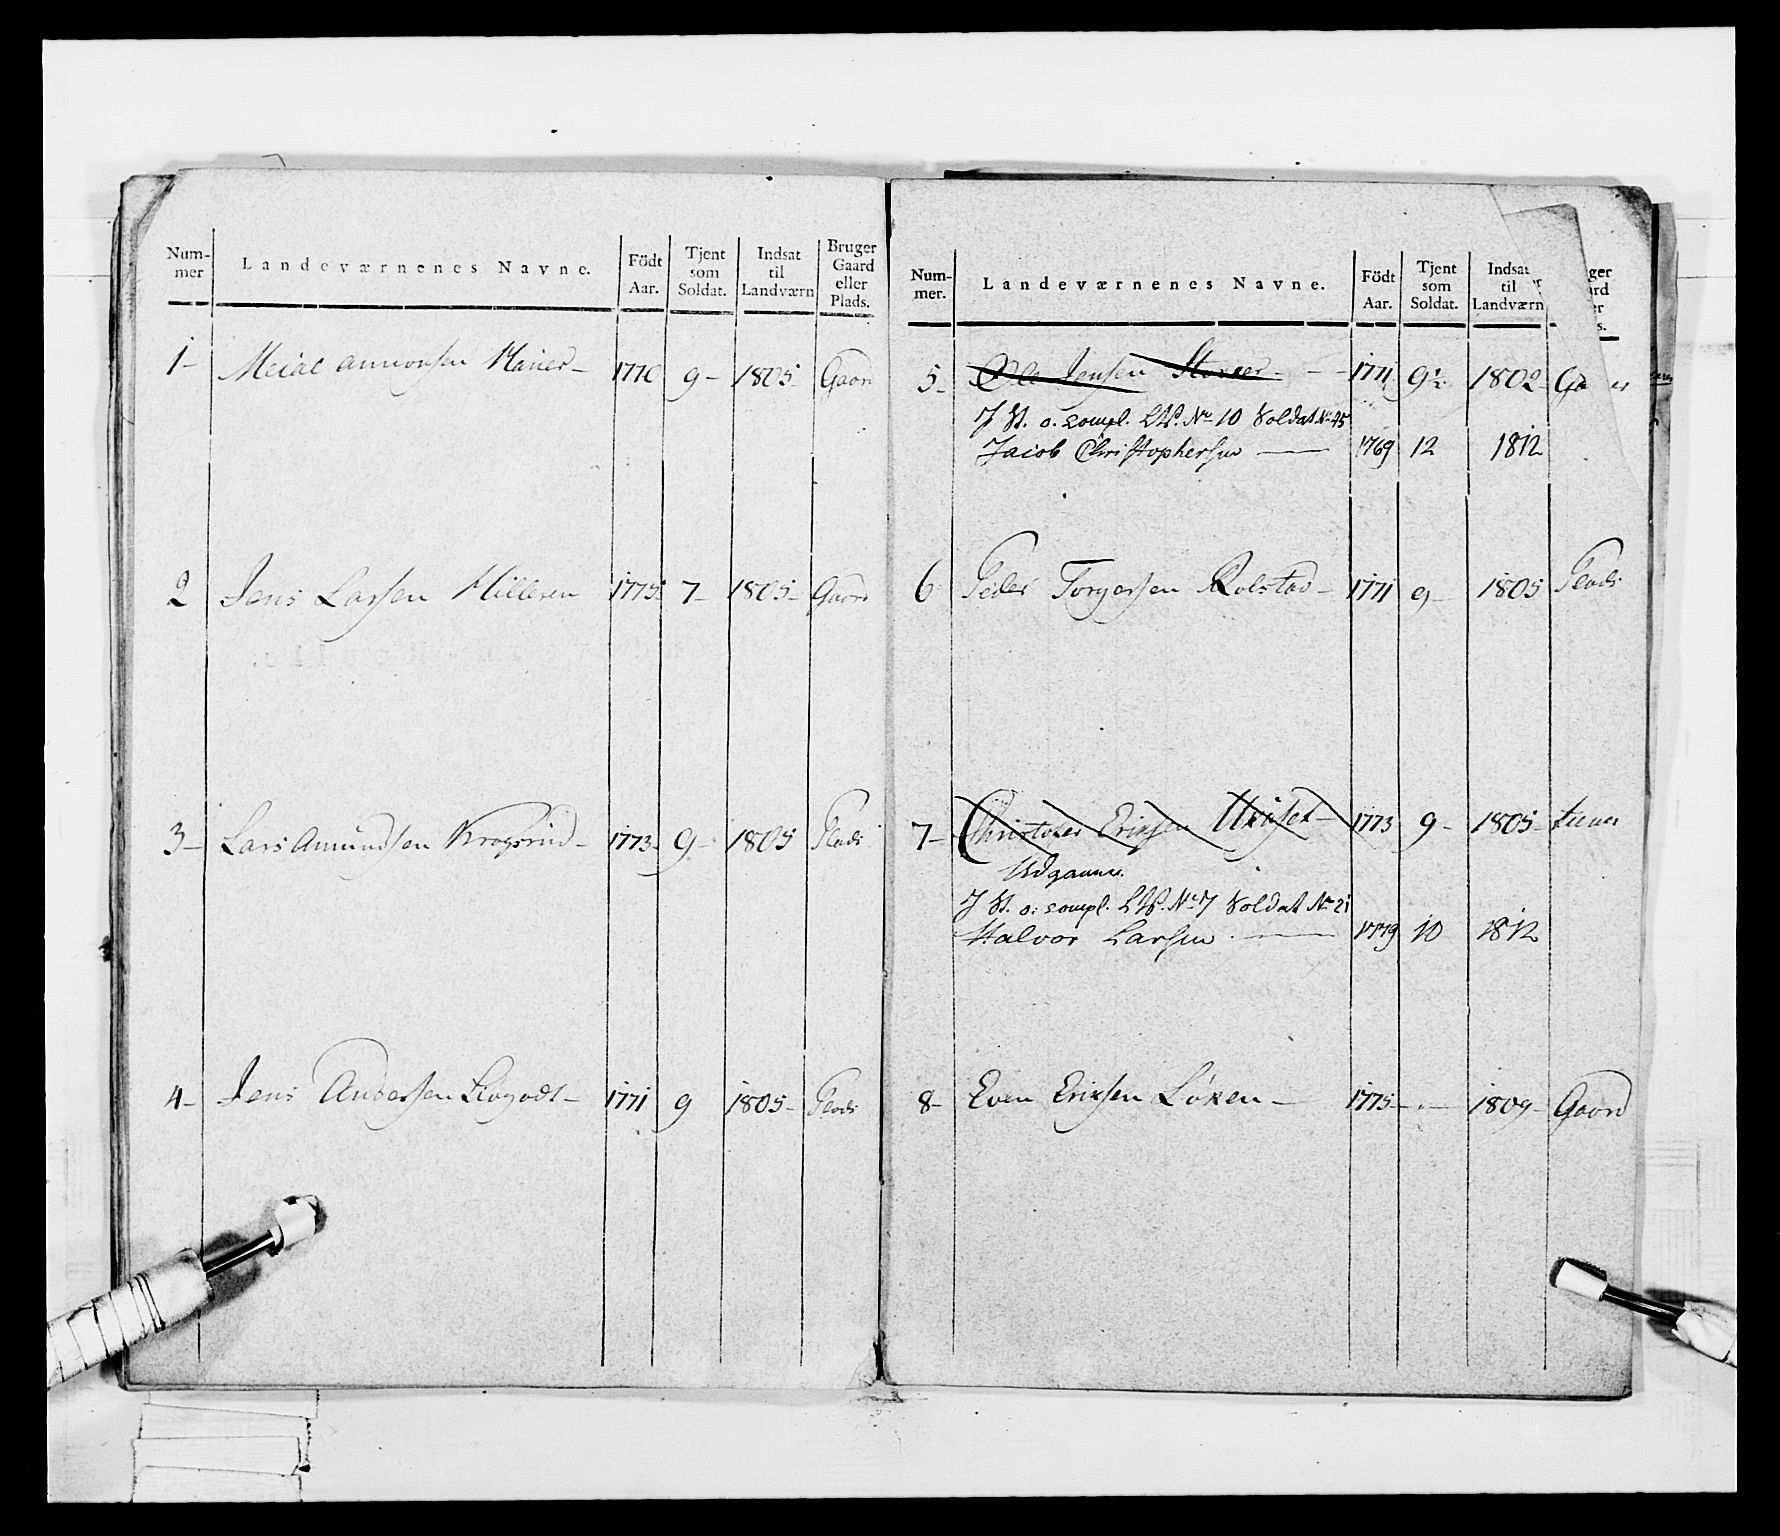 Num-mer | Landeværnenes Navne. | Födt Aar. | Tjent som Soldat. | Indsat til Landværn | Bruger Gaard eller Plads.
1- | Haner- | 1770 | 9- | 1805- | Gaard
2 | Jens Larsen Milleren | 1775 | 7- | 1805- | Gaard
3- | Lars Amundsen Krogsrud- | 1773- | 9- | 1805 | Plads
4- | Jens Andersen- | 1771 | 9 | 1805- | Plads
Num-mer. | Landeværnenes Navne. | Födt Aar. | Tjent som Soldat. | Indsat til Landværn
5- | Ole Jensen | 1771 | 9½ | 1802-
J St. o. compl. LW. No 10 Soldat No 45
Jacob Christophersen | 1769 | 12 | 1812
6 | Peder Torgersen Rolstad- | 1771 | 9- | 1805 | Plads
7- | Christofer Eriksen | 1773 | 9- | 1805- | tiener
Udgaaer
J St. o: compl. LW. No 7 Soldat No 21
Halvor Larsen | 1779 | 10 | 1812
8- | Even Eriksen Løken- | 1775- | - | 1809- | Gaard